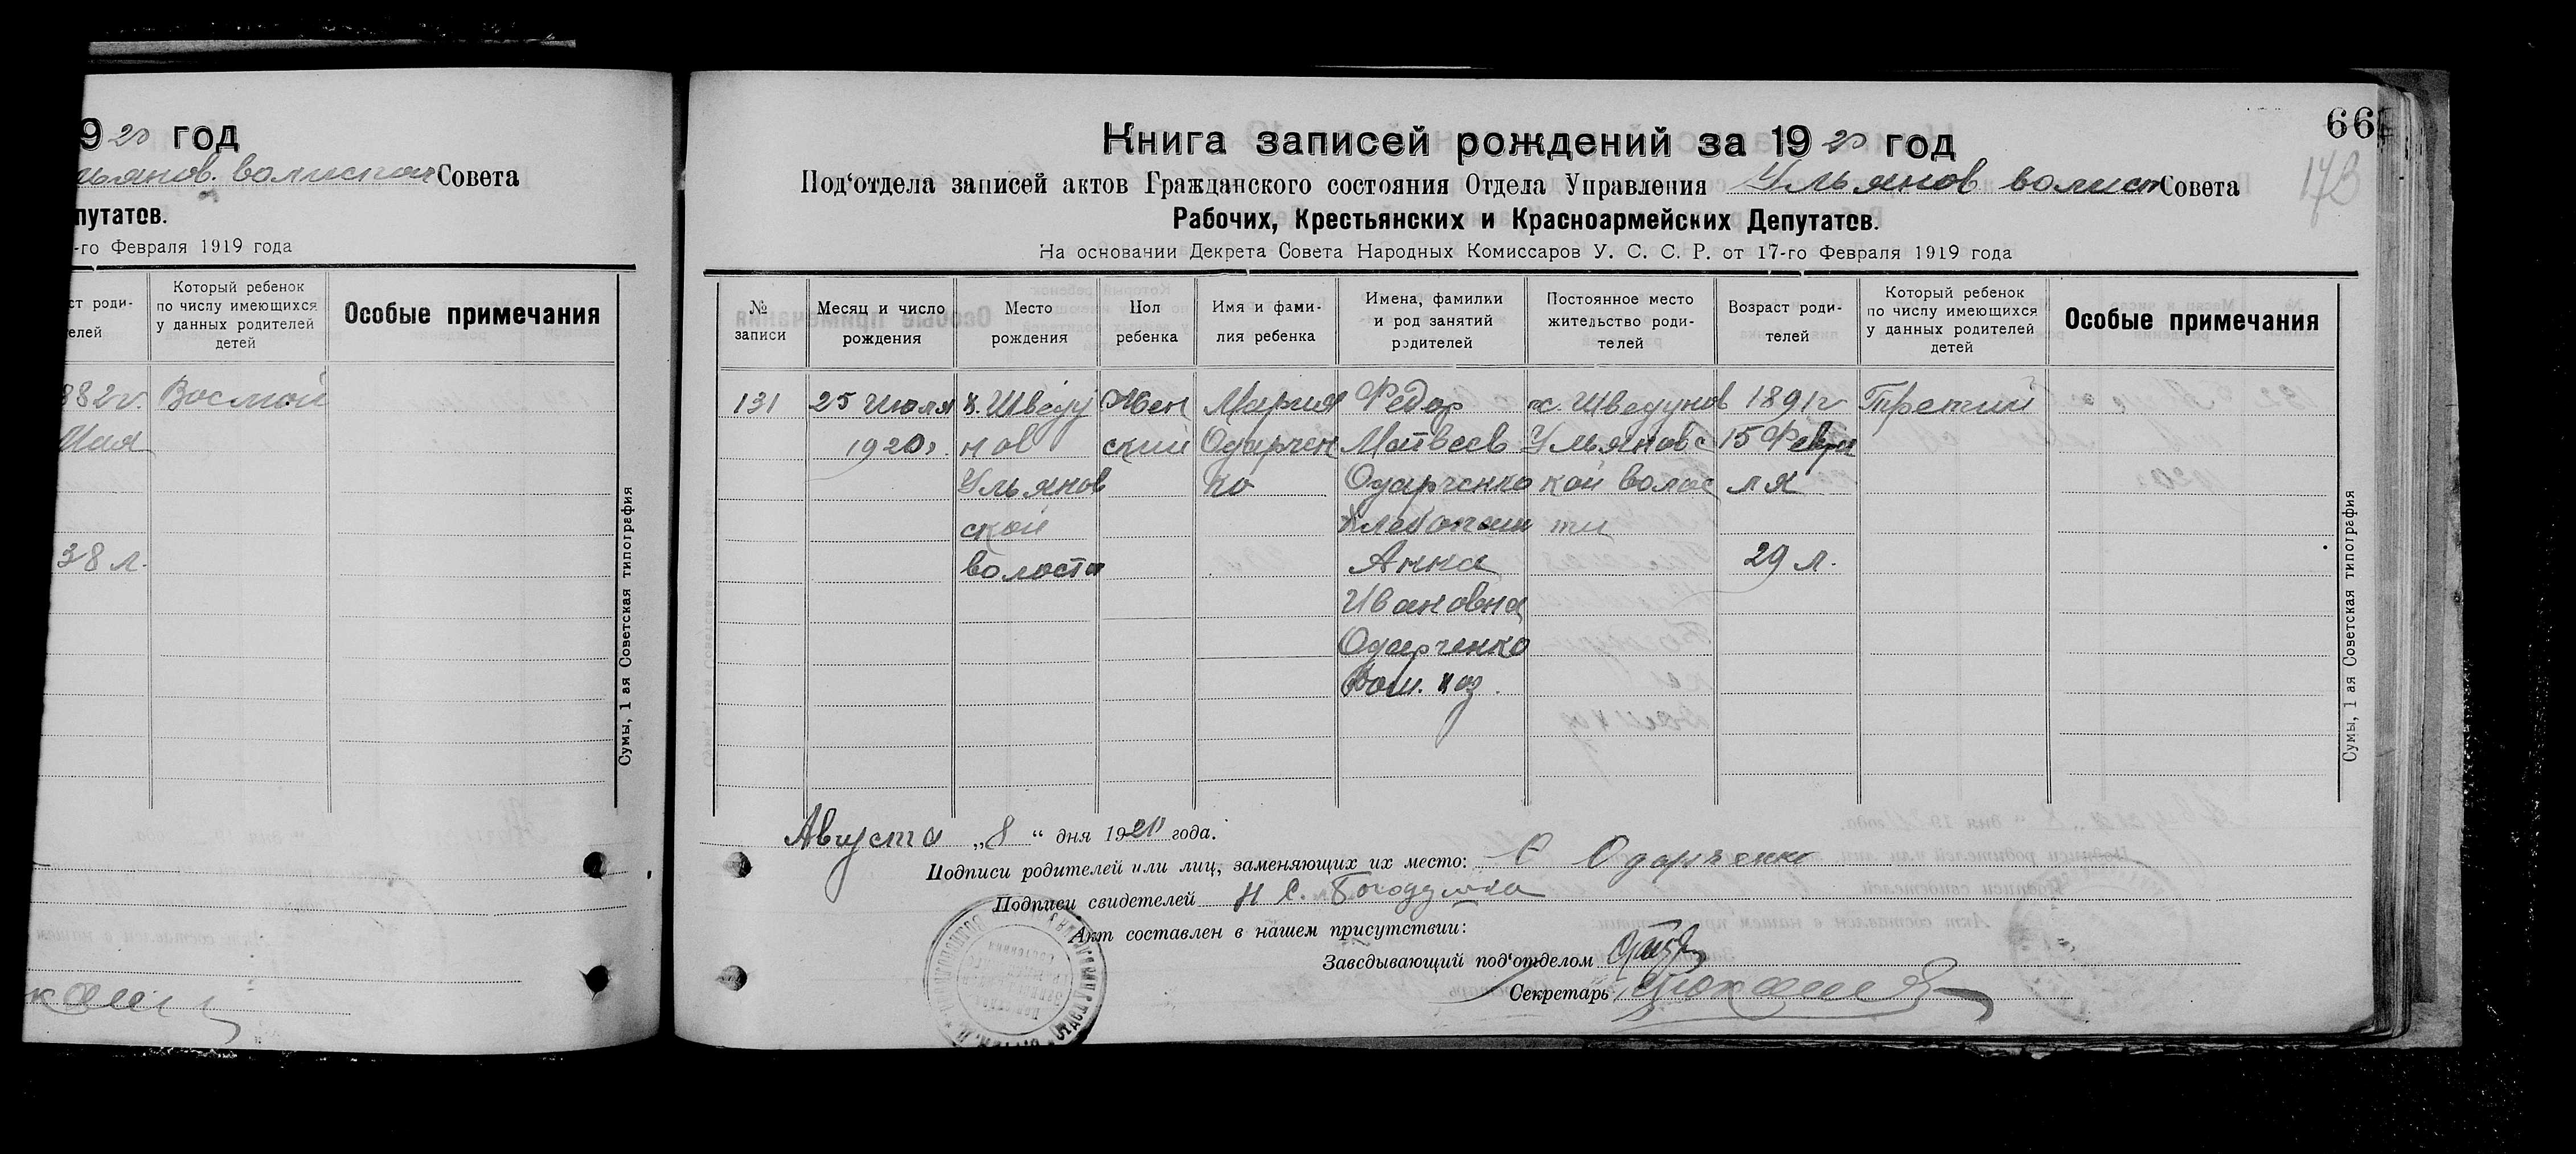 9 20 год
Совета
путатов.
-го Февраля 1919 года
ст роди-
телей
Который ребенок
по числу имеющихся
у данных родителей
детей
Особые примечания
882 г. Восмой
Мая
38 л.
Сумы, 1 ая Советская типография
66
173
Книга записей рождений за 19 20 год
Под‘отдела записей актов Гражданского состояния Отдела Управления Ульянов волист Совета
Рабочих, Крестьянских и Красноармейских Депутатов.
На основании Декрета Совета Народных Комиссаров У. С. С. Р. от 17-го Февраля 1919 года
№
записи
Месяц и число
рождения
Место
рождения
Пол
ребенка
Имя и фами-
лия ребенка
Имена, фамилии
и род занятий
родителей
Постоянное место
жительство роди-
телей
Возраст роди-
телей
Который ребенок
по числу имеющихся
у данных родителей
детей
Особые примечания
131
25 Июля
1920 г.
х. Шведу
нов
Ульянов
ской
волости
Жен
ский
Мария
Одарчен
ко
Федор
Матвеев
Одарченко
Хлебопаш
Анна
Ивановна
Одарченко
Дом. хоз.
х. Шведунов
Ульяновс
кой волос
ти
1891 г
15 Февра
ля
29 л.
Третий
Сумы, 1 ая Советская типография
Августа „8“ дня 1920 года.
Подписи родителей или лиц, заменяющих их место: Одарченко
Подписи свидетелей Н С.
Акт составлен в нашем присутствии:
Заведывающий под‘отделом
Секретарь